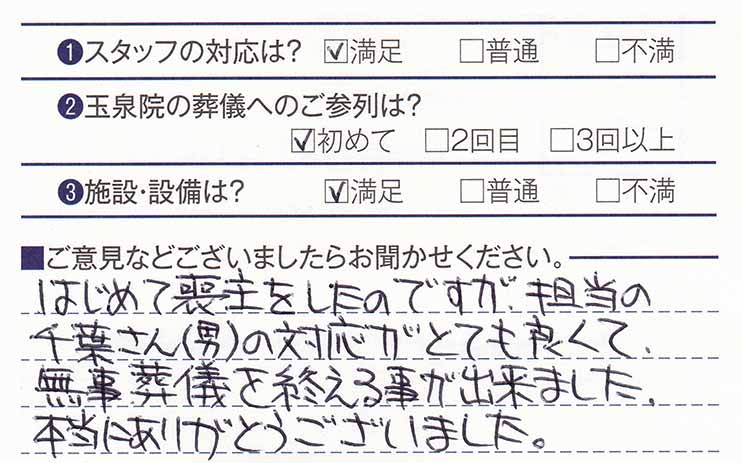 ❶スタッフの対応は? ☑満足 □普通 □不満
❷玉泉院の葬儀へのご参列は?
☑初めて □2回目 □3回以上
❸施設・設備は? ☑満足 □普通 □不満
■ご意見などございましたらお聞かせください。
はじめて喪主をしたのですが、担当の
千葉さん(男)の対応がとても良くて、
無事葬儀を終える事が出来ました。
本当にありがとうございました。